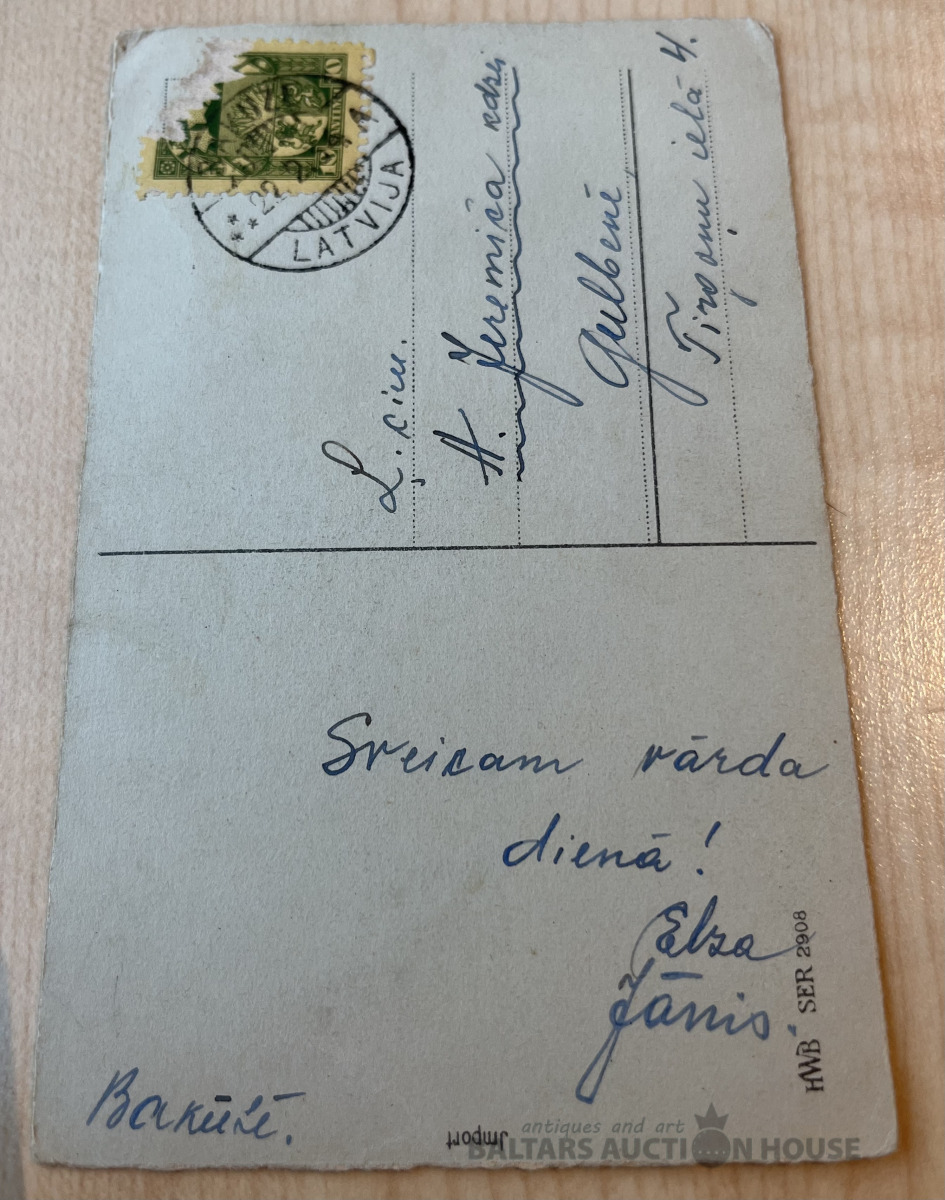 LATVIJA
Ļ. cien.
A. Jeremiča kdze
Gulbenē,
Tirgoņu ielā 4.
Sveicam vārda
dienā!
Elza
Jānis.
HWB SER 2908
Import
antiques and art
BALTARS AUCTION HOUSE